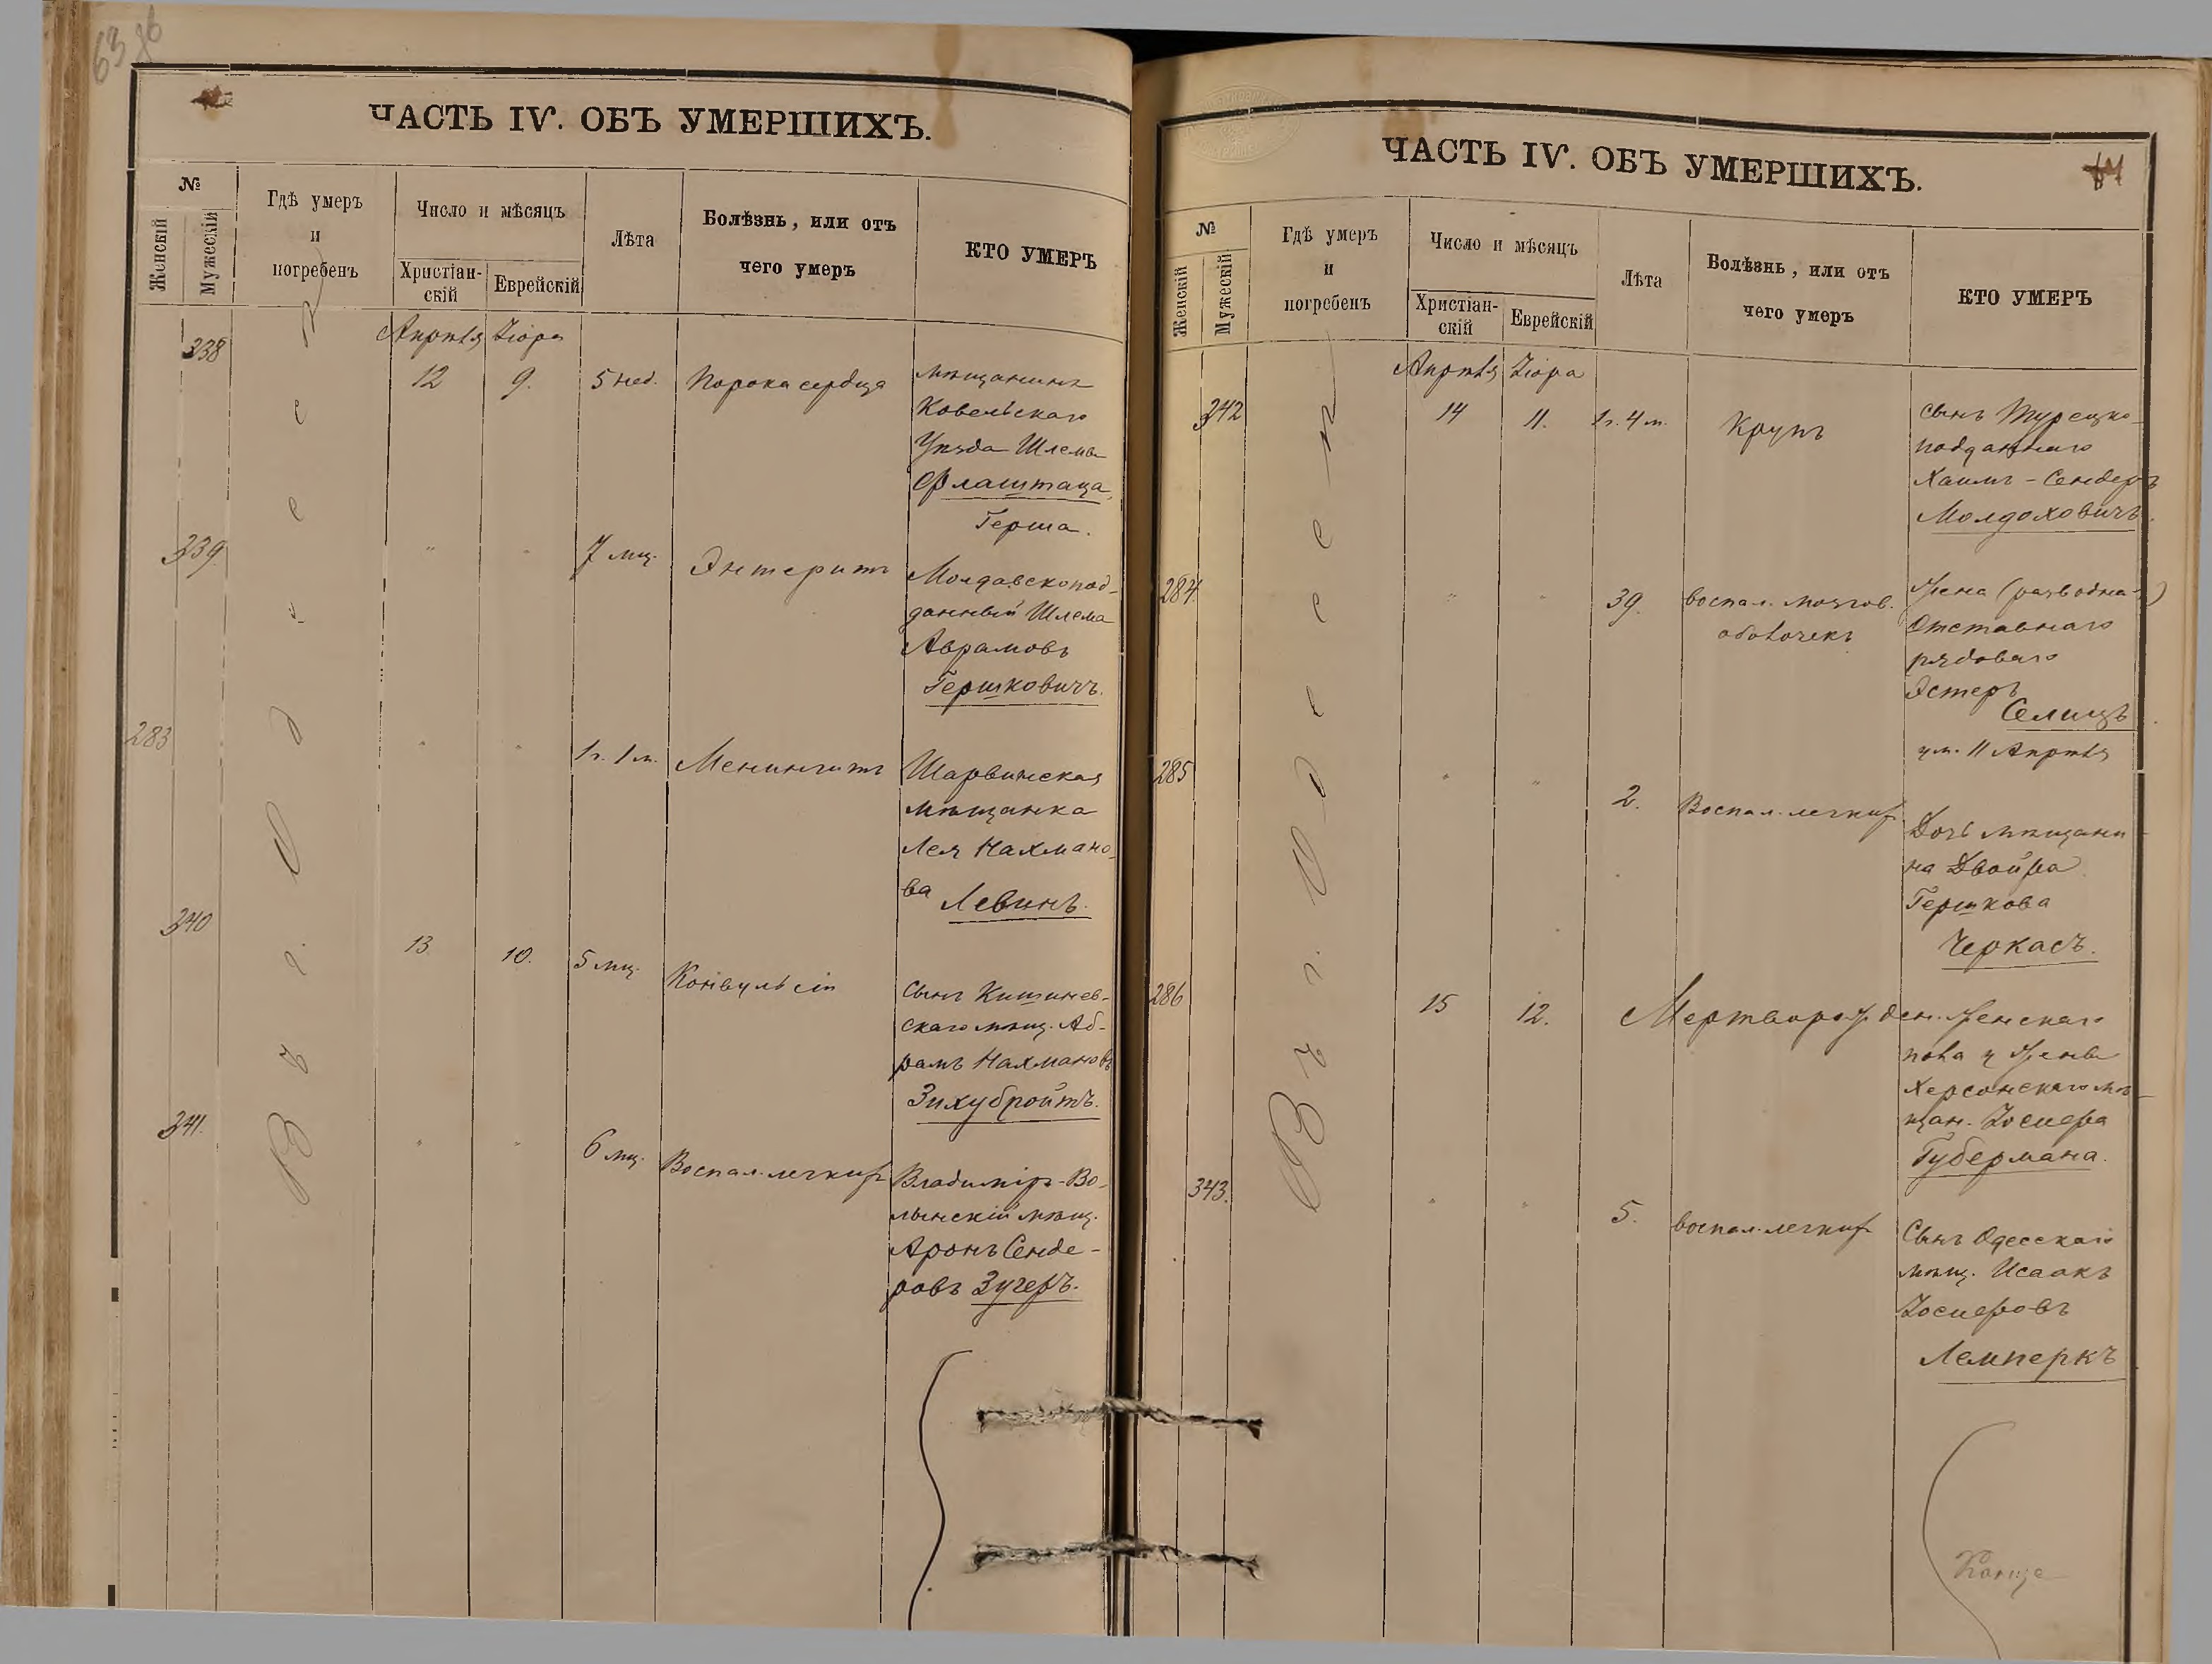 63 об
ЧАСТЬ IV. ОБЪ УМЕРШИХЪ.
№
Женскій
Мужескій
Гдѣ умеръ
и
погребенъ
Число и мѣсяцъ
Христіан-
скій
Еврейскій
Лѣта
Болѣзнь, или отъ
чего умеръ
КТО УМЕРЪ
Въ г. Одессѣ
Апрѣля Іюра
338
12 9. 5 нед. Порока сердца
мѣщанинъ
Ковельскаго
Уѣзда Шлема
Флаштаца,
Герша.
339
" " 7 мц. Энтеритъ
Молдавскопод-
данный Шлема
Аврамовъ
Гершковичъ.
283
" " 1 г. 1 м. Менингитъ
Шарвинская
мѣщанка
Лея Нахмано-
ва Левинъ.
340
13. 10. 5 мц. Конвульсіи
Сынъ Кишинев-
скаго мѣщ. Аб-
рамъ Нахмановъ
Зихубройтъ.
341.
" " 6 мц. Воспал. легкихъ
Владиміръ-Во-
лынскій мѣщ.
Аронъ Сенде-
ровъ Зугеръ.
ЧАСТЬ IV. ОБЪ УМЕРШИХЪ.
64
№
Женскій
Мужескій
Гдѣ умеръ
и
погребенъ
Число и мѣсяцъ
Христіан-
скій
Еврейскій
Лѣта
Болѣзнь, или отъ
чего умеръ
КТО УМЕРЪ
Въ г. Одессѣ
Апрѣля Іюра
342
14 11. 1 г. 4 м. Крупъ
сынъ Турецко-
подданнаго
Хаимъ-Сендеръ
Молдоховичъ.
284.
" " 39. воспал. мозгов.
оболочекъ
Жена (разводна-)
Отставнаго
рядоваго
Эстеръ
Селицъ
ум. 11 Апрѣля
285
" " 2. Воспал. легкихъ
Дочь мѣщани-
на Двойра
Гершкова
Черкасъ.
286
15 12. Мертворожден. женскаго
пола у жены
Херсонскаго мѣ-
щан. Іосифа
Губермана.
343.
" " 5. воспал. легкихъ
Сынъ Одесскаго
мѣщ. Исаакъ
Іосифовъ
Лемперкъ